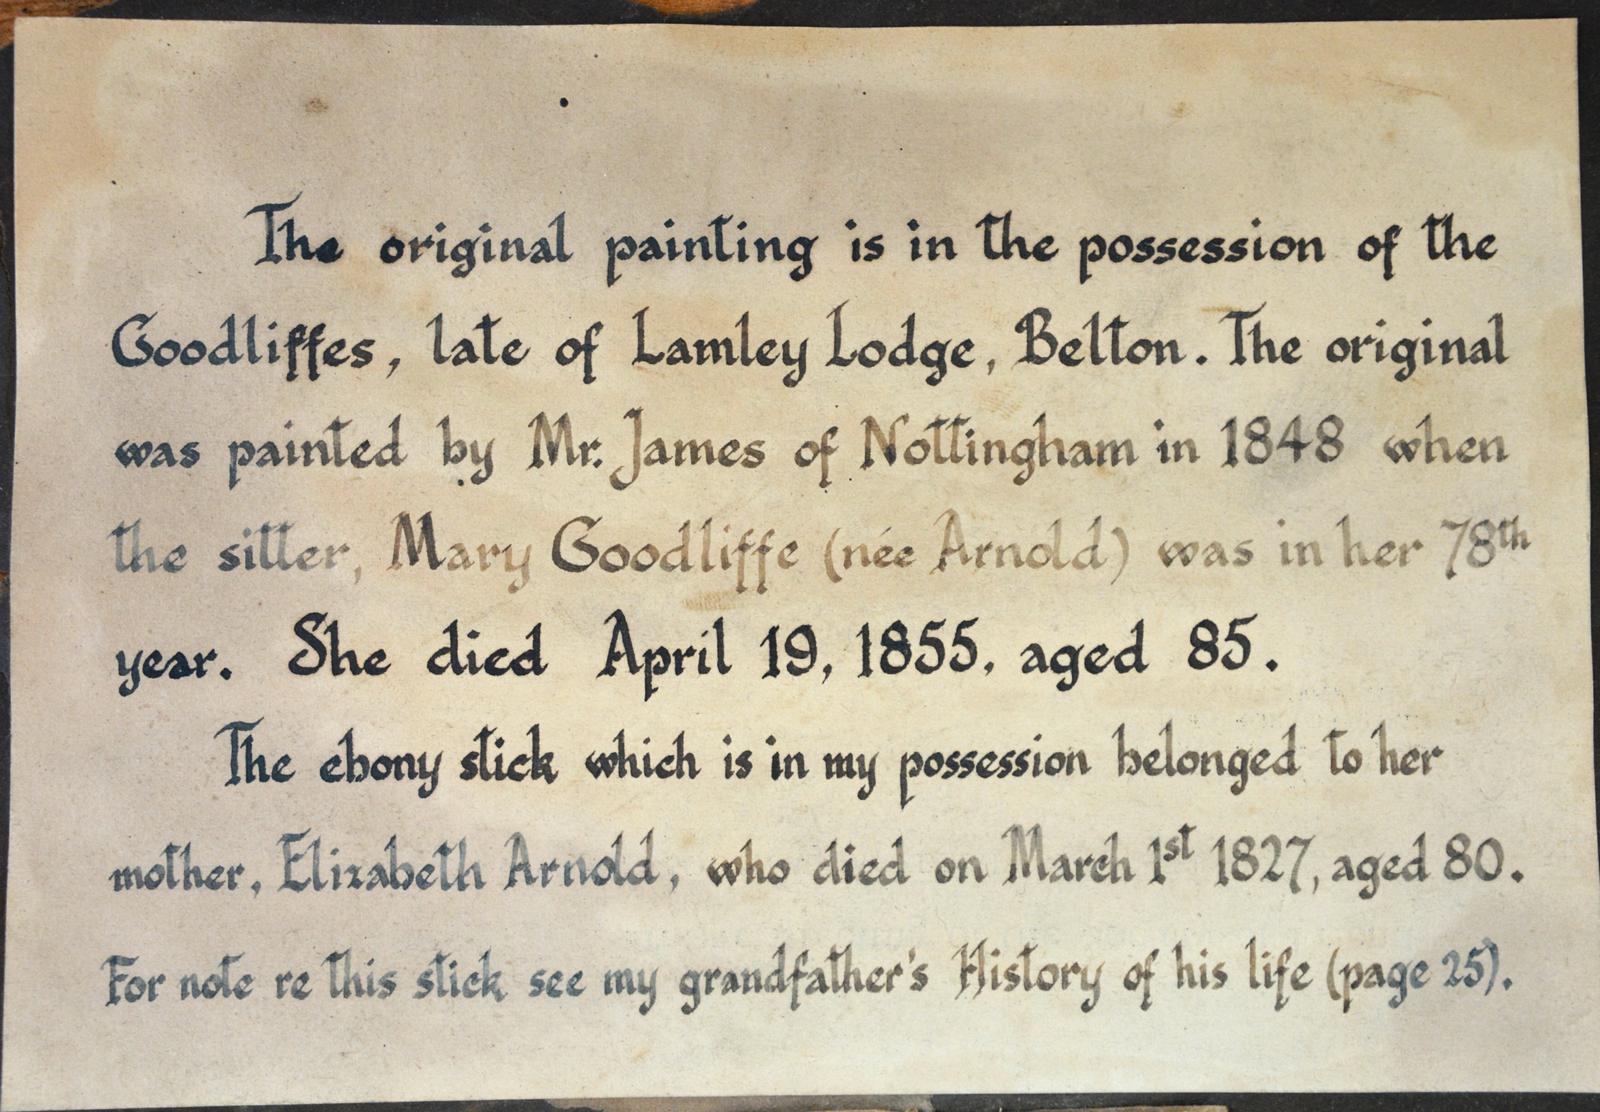 The original painting is in the possession of the
Goodliffes, late of Lamley Lodge, Belton. The original
was painted by Mr. James of Nottingham in 1848 when
the sitter, Mary Goodliffe (née Arnold) was in her 78th
year. She died April 19, 1855, aged 85.
The ebony stick which is in my possession belonged to her
mother, Elizabeth Arnold, who died on March 1st 1827, aged 80.
For note re this stick see my grandfather's History of his life (page 25).